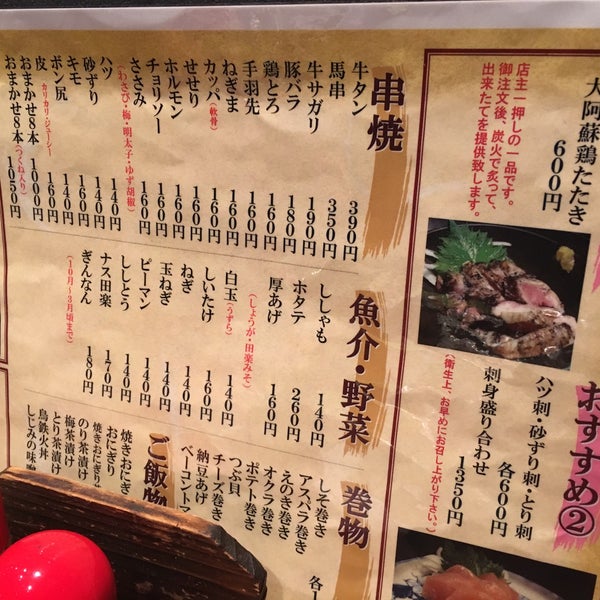 大阿蘇鶏たたき
600円
店主一押しの一品です。
御注文後、炭火で炙って、
出来たてを提供致します。
おすすめ②
ハツ刺・砂ずり刺・とり刺
各600円
刺身盛り合わせ
1350円
(衛生上、お早めにお召し上がり下さい。)
串焼
牛タン 390円
馬串 350円
牛サガリ 190円
豚バラ 180円
鶏とろ 160円
手羽先 160円
ねぎま 160円
カッパ(軟骨) 160円
せせり 160円
ホルモン 160円
チョリソー 160円
ささみ 160円
(わさび・梅・明太子・ゆず胡椒)
ハツ 140円
砂ずり 140円
キモ 140円
ボン尻 140円
皮 カリカリ・ジューシー 140円
おまかせ8本 1000円
おまかせ8本(つくね入り) 1050円
魚介・野菜
ししゃも 140円
ホタテ 260円
厚あげ 160円
(しょうが・田楽みそ)
白玉(うずら) 140円
しいたけ 160円
ねぎ 140円
玉ねぎ 140円
ピーマン 140円
ししとう 140円
ナス田楽 170円
ぎんなん 180円
(10月~3月頃まで)
巻物
しそ巻き
アスパラ巻き
えのき巻き
オクラ巻き
ポテト巻き
つぶ貝
チーズ巻き
納豆あげ
ベーコントマ
各1
ご飯物
焼きおにぎ
おにぎり
焼きおにぎり
のり茶漬け
梅茶漬け
とり茶漬け
鳥鉄火丼
しじみの味噌